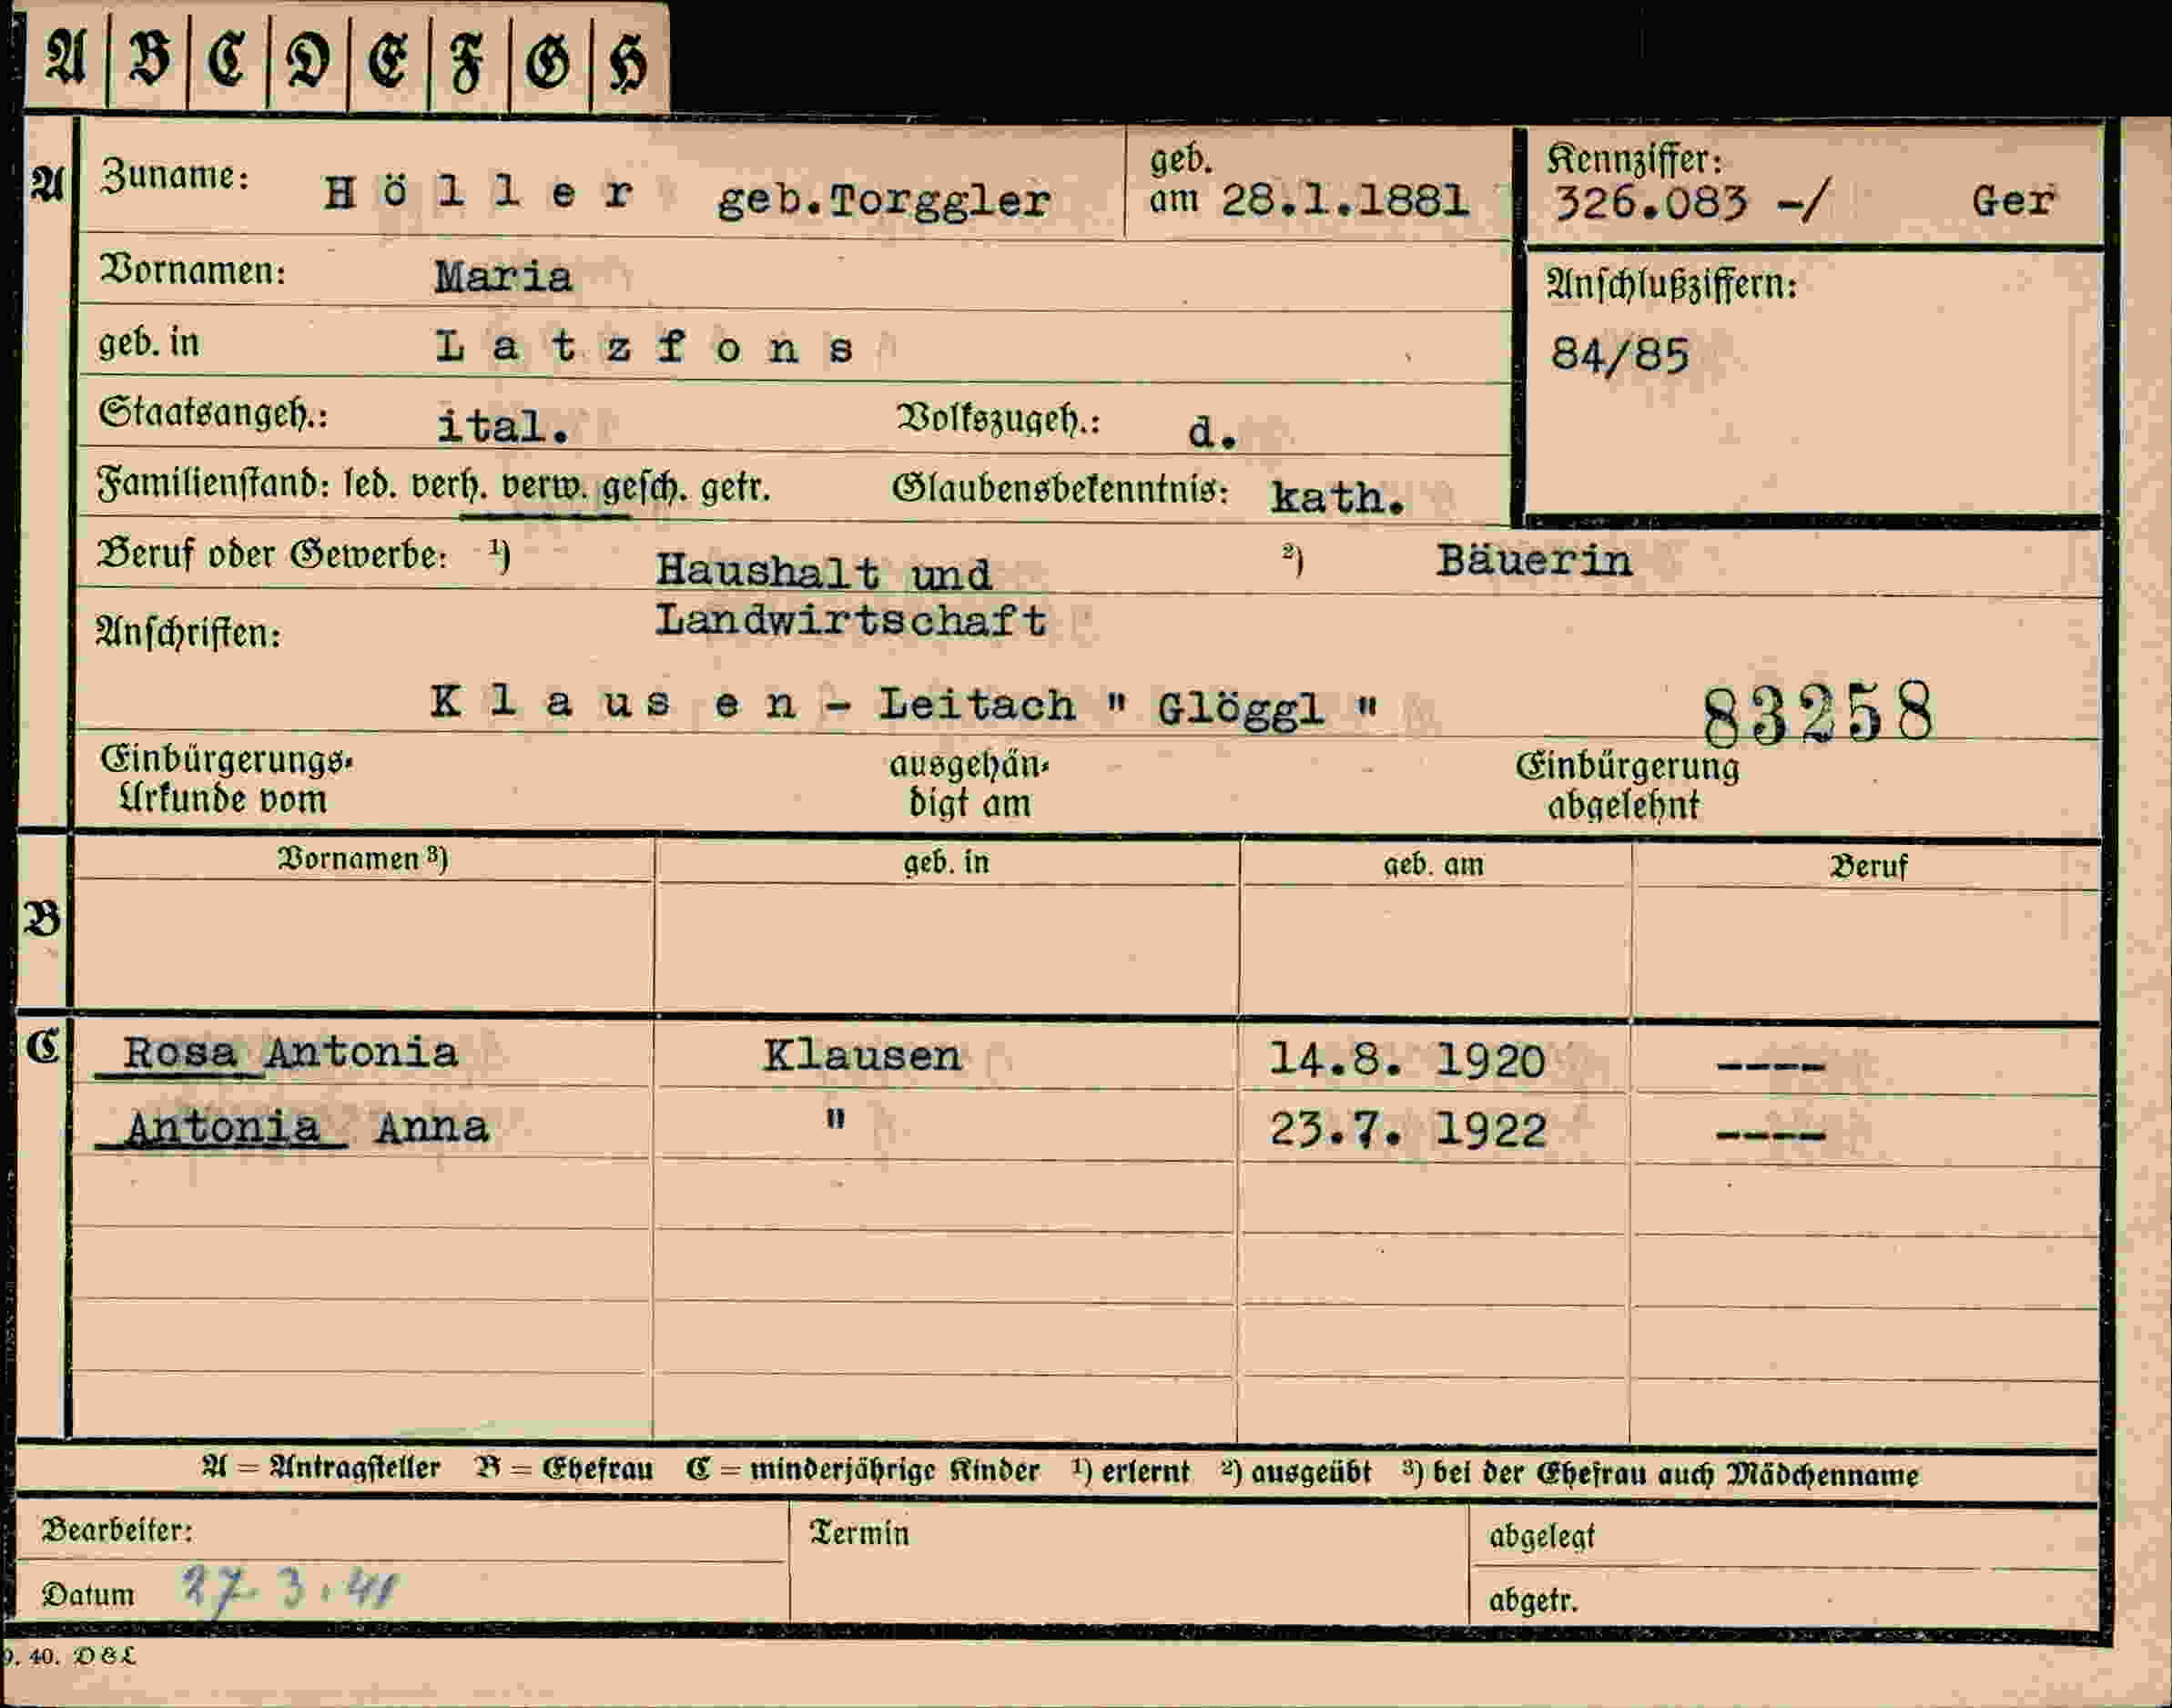 A B C D E F G H
A Zuname: Höller geb.Torggler geb. am 28.1.1881 Kennziffer: 326.083 -/ Ger
Vornamen: Maria Anschlußziffern:
geb. in Latzfons 84/85
Staatsangeh.: ital. Volkszugeh.: d.
Familienstand: led. verh. verw. gesch. getr. Glaubensbekenntnis: kath.
Beruf oder Gewerbe: 1) Haushalt und 2) Bäuerin
Landwirtschaft
Anschriften:
Klausen - Leitach " Glöggl " 83258
Einbürgerungs- ausgehän- Einbürgerung
Urkunde vom digt am abgelehnt
Vornamen 3) geb. in geb. am Beruf
B
C Rosa Antonia Klausen 14.8. 1920 ----
Antonia Anna " 23.7. 1922 ----
A = Antragsteller B = Ehefrau C = minderjährige Kinder 1) erlernt 2) ausgeübt 3) bei der Ehefrau auch Mädchenname
Bearbeiter: Termin abgelegt
Datum 27.3.41 abgetr.
9. 40. D & L